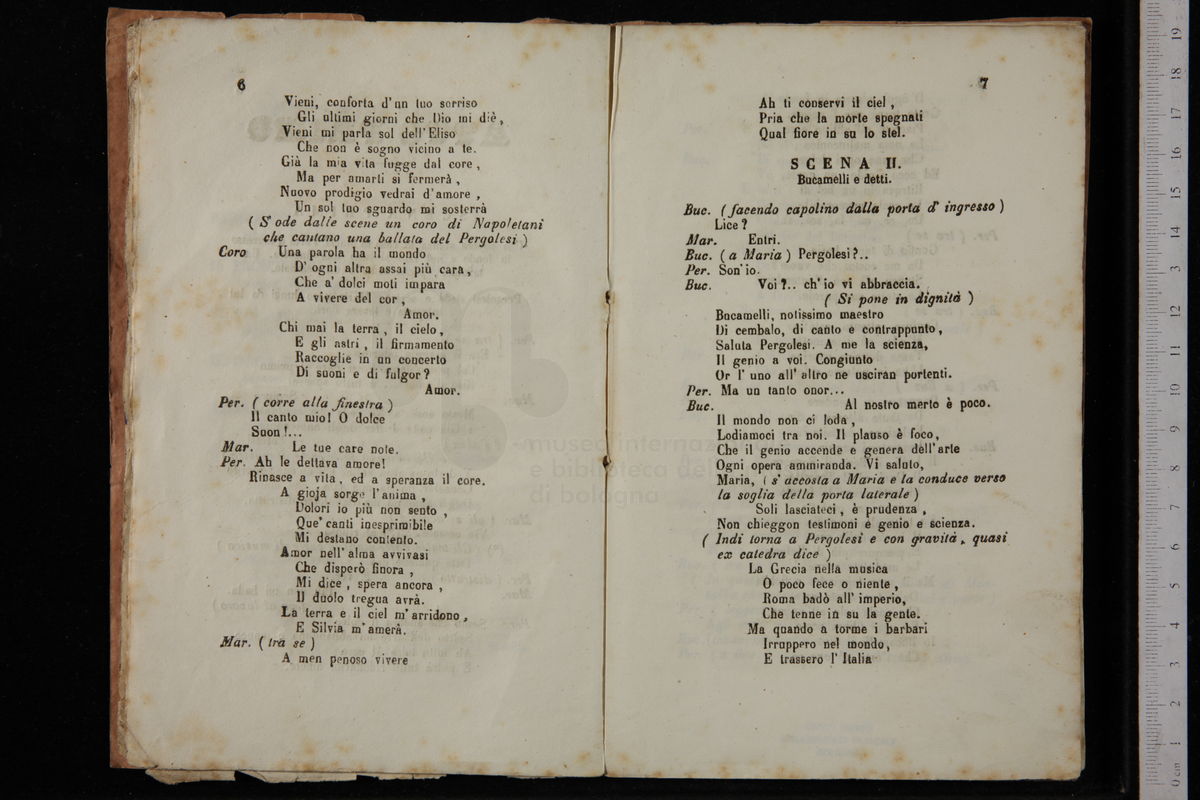 6
Vieni, conforta d'un tuo sorriso
Gli ultimi giorni che Dio mi diè,
Vieni mi parla sol dell'Eliso
Che non è sogno vicino a te.
Già la mia vita fugge dal core,
Ma per amarti si fermerà,
Nuovo prodigio vedrai d'amore,
Un sol tuo sguardo mi sosterrà
( S'ode dalle scene un coro di Napoletani
che cantano una ballata del Pergolesi )
Coro Una parola ha il mondo
D'ogni altra assai più cara,
Che a' dolci moti impara
A vivere del cor,
Amor.
Chi mai la terra, il cielo,
E gli astri, il firmamento
Raccoglie in un concerto
Di suoni e di fulgor?
Amor.
Per. ( corre alla finestra )
Il canto mio! O dolce
Suon!...
Mar. Le tue care note.
Per. Ah le dettava amore!
Rinasce a vita, ed a speranza il core.
A gioja sorge l'anima,
Dolori io più non sento,
Que' canti inesprimibile
Mi destano contento.
Amor nell'alma avvivasi
Che disperò finora,
Mi dice, spera ancora,
Il duolo tregua avrà.
La terra e il ciel m'arridono,
E Silvia m'amerà.
Mar. ( tra se )
A men penoso vivere
7
Ah ti conservi il ciel,
Pria che la morte spegnati
Qual fiore in su lo stel.
SCENA II.
Bucamelli e detti.
Buc. ( facendo capolino dalla porta d'ingresso )
Lice?
Mar. Entri.
Buc. ( a Maria ) Pergolesi?..
Per. Son'io.
Buc. Voi?.. ch'io vi abbraccia.
( Si pone in dignità )
Bucamelli, notissimo maestro
Di cembalo, di canto e contrappunto,
Saluta Pergolesi. A me la scienza,
Il genio a voi. Congiunto
Or l'uno all'altro ne usciran portenti.
Per. Ma un tanto onor...
Buc. Al nostro merto è poco.
Il mondo non ci loda,
Lodiamoci tra noi. Il plauso è foco,
Che il genio accende e genera dell'arte
Ogni opera ammiranda. Vi saluto,
Maria, ( s'accosta a Maria e la conduce verso
la soglia della porta laterale )
Soli lasciateci, è prudenza,
Non chieggon testimoni e genio e scienza.
( Indi torna a Pergolesi e con gravità, quasi
ex catedra dice )
La Grecia nella musica
O poco fece o niente,
Roma badò all'imperio,
Che tenne in su la gente.
Ma quando a torme i barbari
Irruppero nel mondo,
E trassero l'Italia
museo internaz
e biblioteca del
di bologna
0 cm 1 2 3 4 5 6 7 8 9 10 11 12 13 14 15 16 17 18 19